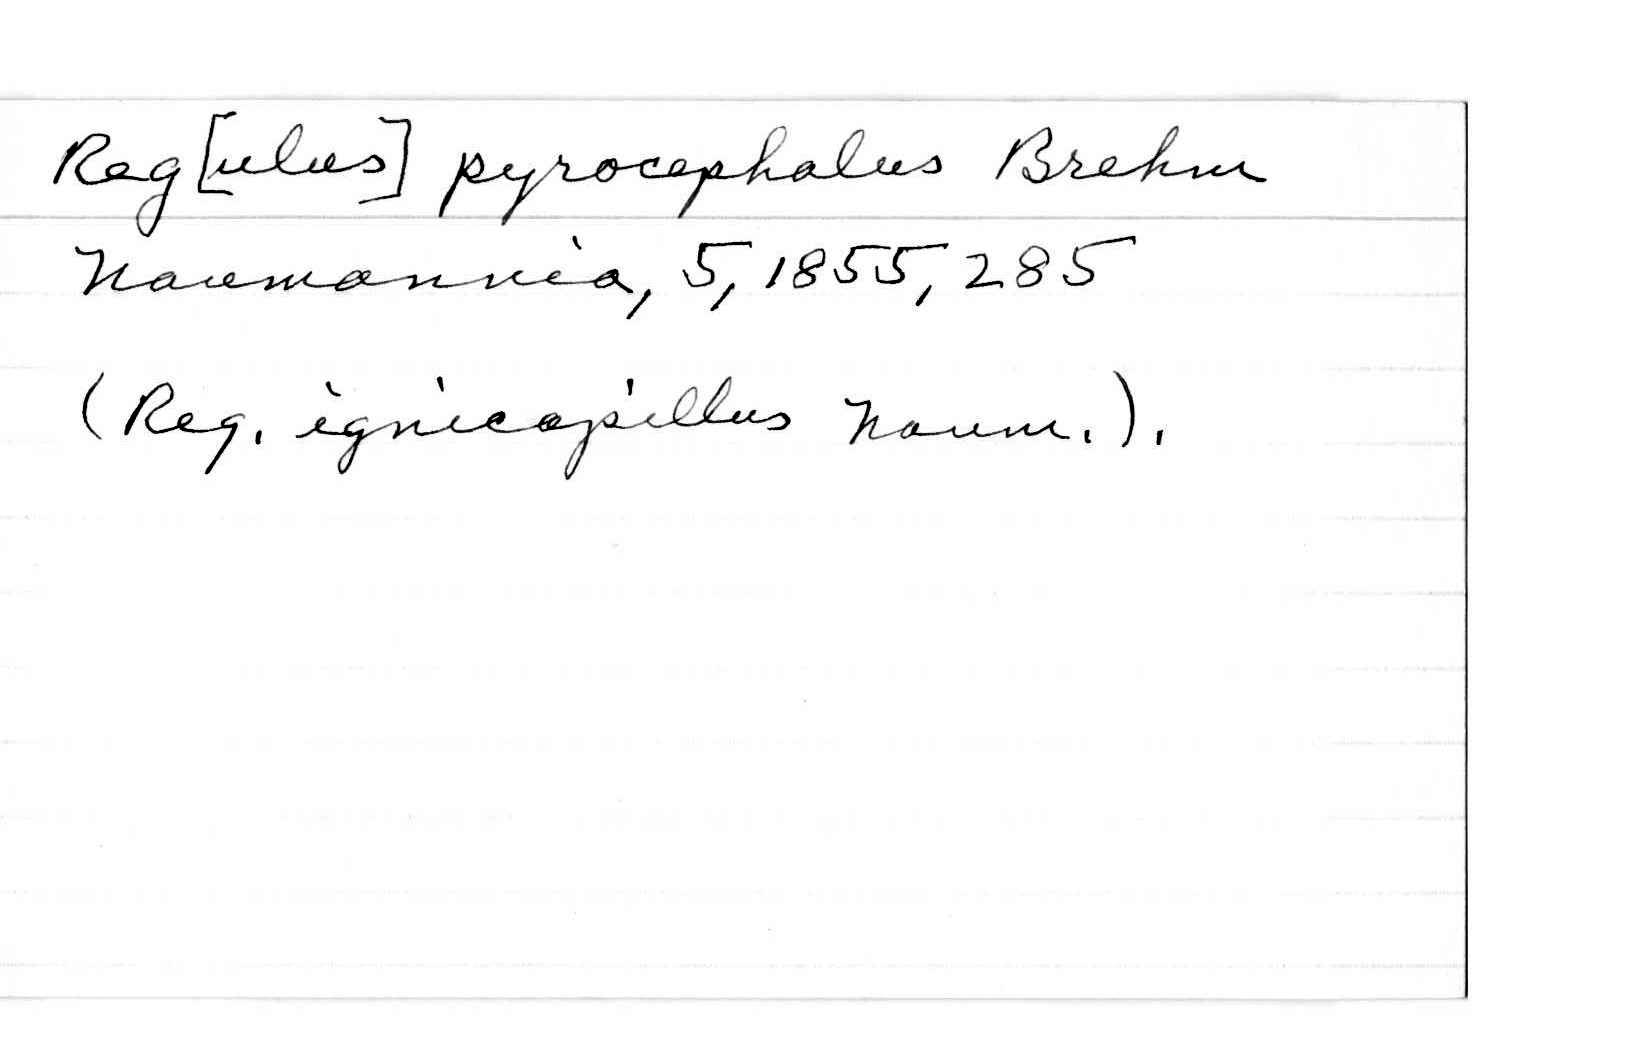 Reg[ulus] pyrocephalus Brehm
Naumannia, 5, 1855, 285
(Reg. ignicapillus Naum.).